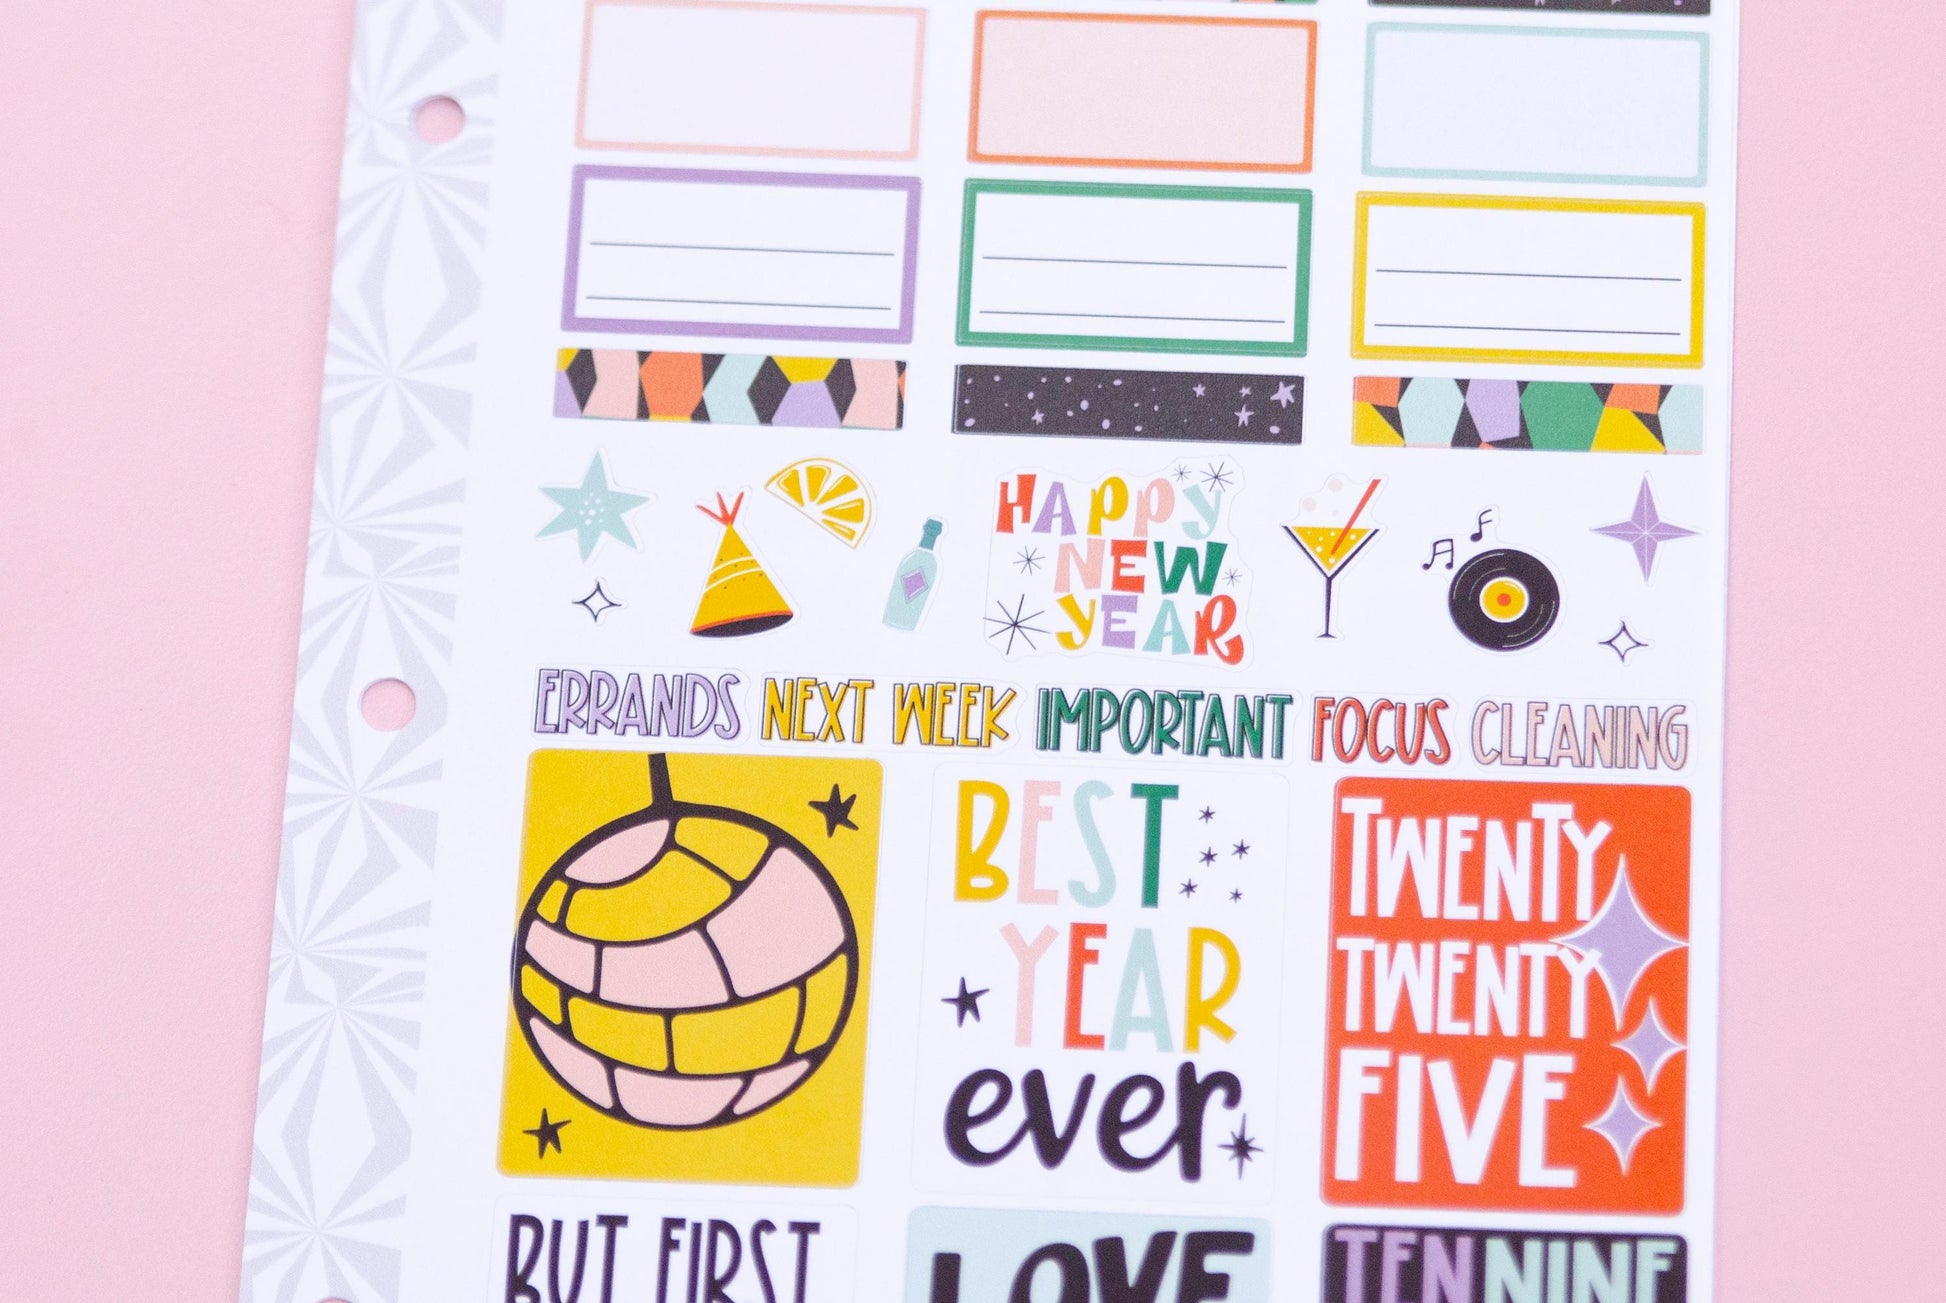 HAPPY
NEW
YEAR
ERRANDS
NEXT WEEK
IMPORTANT
FOCUS
CLEANING
BEST
YEAR
ever
TWENTY
TWENTY
FIVE
BUT FIRST
LOVE
TEN NINE